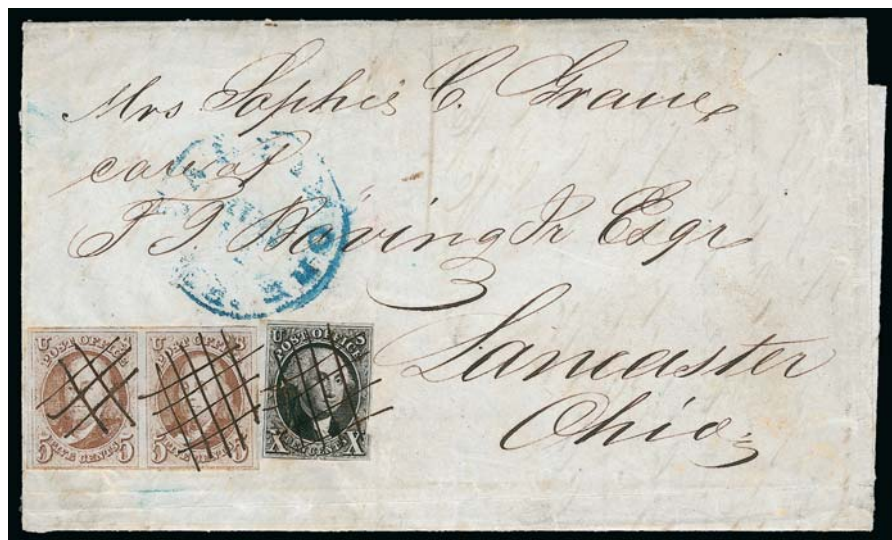 Mrs Sophie C. Graue
care of
F. J. Böving Jr Esqr
Lancaster
Ohio
OHIO
U S
POST OFFICE
5 FIVE CENTS 5
U S
POST OFFICE
5 FIVE CENTS 5
U S
POST OFFICE
X TEN CENTS X